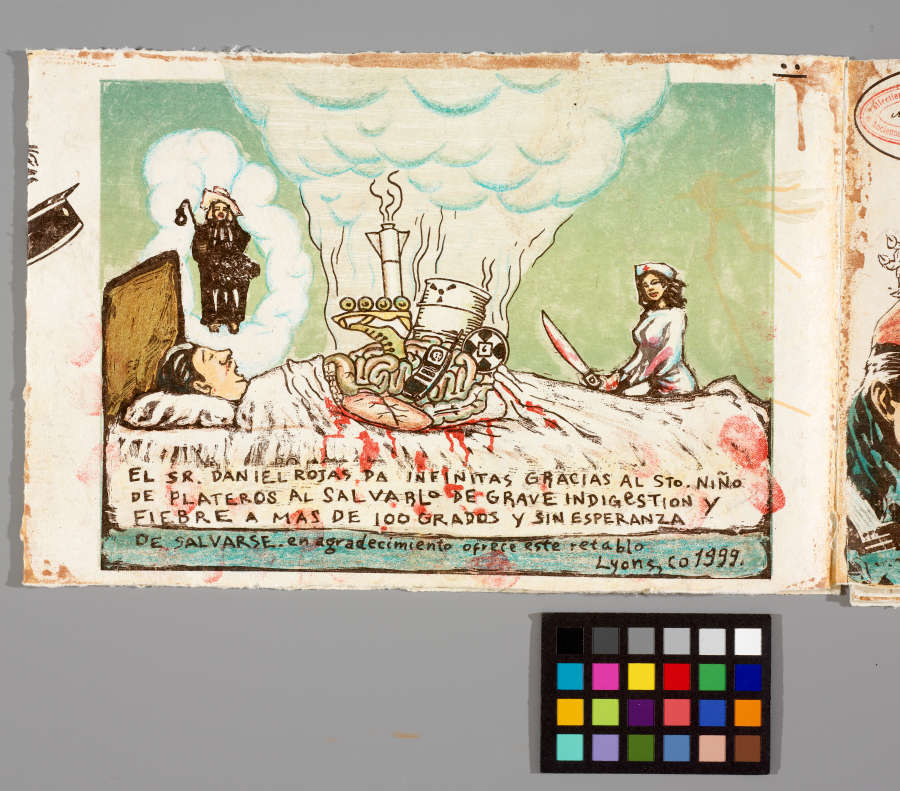 EL SR. DANIEL ROJAS DA INFINITAS GRACIAS AL STO. NIÑO
DE PLATEROS AL SALVARLO DE GRAVE INDIGESTION Y
FIEBRE A MAS DE 100 GRADOS Y SIN ESPERANZA
DE SALVARSE. en agradecimiento ofrece este retablo
Lyons, CO 1999.